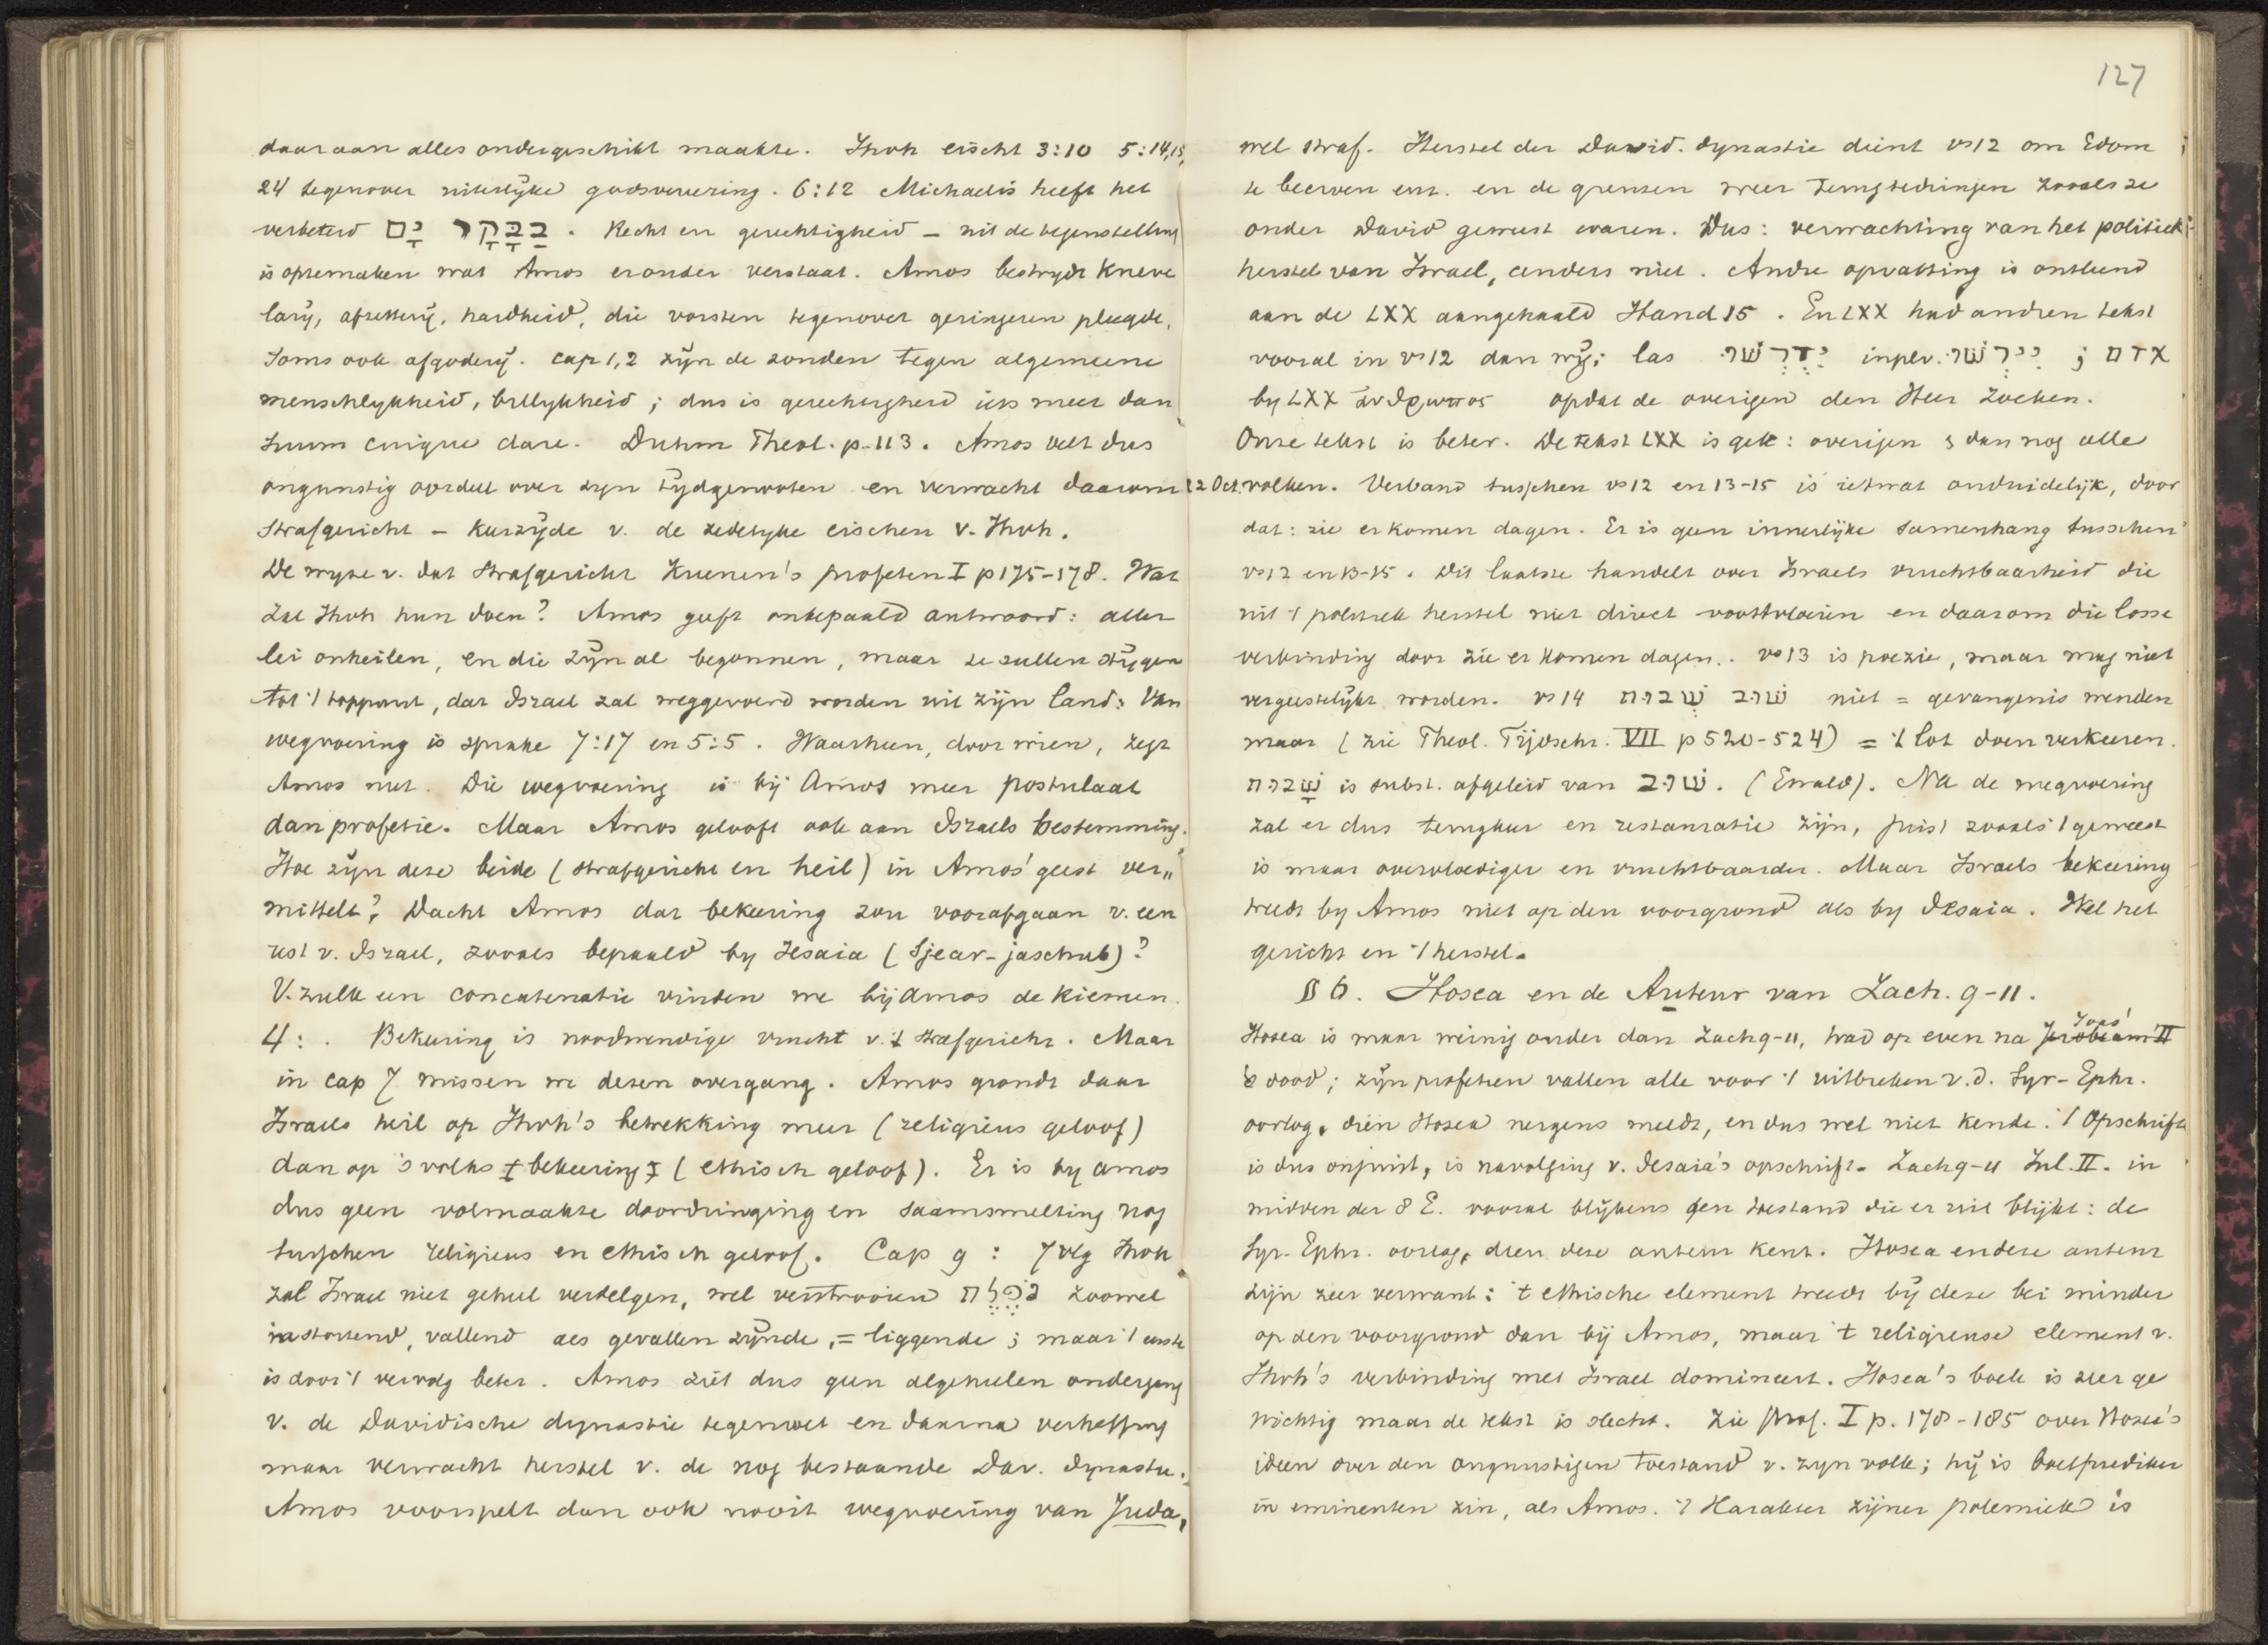 daaraan alles ondergeschikt maakte. Jhvh eischt 3:10 5:14,15,
24 tegenover uiterlijke godsvereering. 6:12 Michaelis heeft het
verbeterd בַּבָּקָר יָם. Recht en gerechtigheid – uit de tegenstelling
is optemaken wat Amos eronder verstaat. Amos bestrijdt kneve
larij, afzetterij, hardheid, die vorsten tegenover geringeren pleegde,
soms ook afgoderij. cap 1,2 zijn de zonden tegen algemeene
menschlykheid, billykheid; dus is gerechtigheid iets meer dan
suum cuique dare. Duhm Theol. p. 113. Amos velt dus
ongunstig oordeel over zyn tydgenooten en verwacht daarom
strafgericht – keerzijde v. de zedelyke eischen v. Jhvh.
De wyze v. dat strafgericht Kuenen's profeten I p 175-178. Wat
zal Jhvh hun doen? Amos geeft onbepaald antwoord: aller
lei onheilen, en die zijn al begonnen, maar ze zullen stijgen
tot 't toppunt, dat Israel zal weggevoerd worden uit zijn land: Van
wegvoering is sprake 7:17 en 5:5. Waarheen, door wien, zegt
Amos niet. Die wegvoering is bij Amos meer postulaat
dan profetie. Maar Amos gelooft ook aan Israels bestemming.
Hoe zijn deze beide (strafgericht en heil) in Amos' geest ver„
mittelt? Dacht Amos dat bekeering zou voorafgaan v. een
rest v. Israel, zooals bepaald by Jesaia (Sjear-jaschub)?
V. zulk een concatenatie vinden we bij Amos de kiemen.
4: . Bekeering is noodwendige vrucht v. 't strafgericht. Maar
in cap 7 missen we dezen overgang. Amos grondt daar
Israels heil op Jhvh's betrekking meer (religieus geloof)
dan op 's volks bekeering (ethisch geloof). Er is by Amos
dus geen volmaakte doordringing en saamsmelting nog
tusschen religieus en ethisch geloof. Cap 9: 7 vlg Jhvh
zal Israel niet geheel verdelgen, wel verstrooien נֹפֶלֶת zoowel
instortend, vallend als gevallen zijnde, = liggende; maar 't eerste
is door 't vervolg beter. Amos ziet dus geen algeheelen ondergang
v. de Davidische dynastie tegemoet en daarna verheffing
maar verwacht herstel v. de nog bestaande Dav. dynastie.
Amos voorspelt dan ook nooit wegvoering van Juda,
127
wel straf. Herstel der David. dynastie dient vs 12 om Edom
te beerven enz. en de grenzen weer terugtedringen zooals ze
onder David geweest waren. Dus: verwachting van het politiek
herstel van Israel, anders niet. Andre opvatting is ontleend
aan de LXX aangehaald Hand 15. En LXX had andren tekst
vooral in vs 12 dan wij; las יִדְרְשׁוּ inplv. יִירְשׁוּ; אדם
by LXX ἄνθρωπος opdat de overigen den Heer zoeken.
Onze tekst is beter. De tekst LXX is gek: overigen & dan nog alle
12 Oct. volken. Verband tusschen vs 12 en 13-15 is ietwat onduidelijk, door
dat: zie er komen dagen. Er is geen innerlijke samenhang tusschen
vs 12 en 13-15. Dit laatste handelt over Israels vruchtbaarheid die
uit 't politiek herstel niet direct voortvloeien en daarom die losse
verbinding door zie er komen dagen. vs 13 is poezie, maar mag niet
vergeestelijkt worden. vs 14 שׁוּב שְׁבוּת niet = gevangenis wenden
maar (zie Theol. Tijdschr. VII p 520-524) = 't lot doen verkeeren.
שְׁבוּת is subst. afgeleid van שׁוּב. (Ewald). Na de wegvoering
zal er dus terugkeer en restauratie zijn, juist zooals 't geweest
is maar overvloediger en vruchtbaarder. Maar Israels bekeering
treedt by Amos niet op den voorgrond als by Jesaia. Wel het
gericht en 't herstel.
§ 6. Hosea en de Auteur van Zach. 9-11.
Hosea is maar weinig ouder dan Zach 9-11, trad op even na Jerobeam II Joas'
's dood; zijn profetien vallen alle voor 't uitbreken v.d. Syr-Ephr.
oorlog, dien Hosea nergens meldt, en dus wel niet kende. 't Opschrift
is dus onjuist, is navolging v. Jesaia's opschrift. Zach 9-11 Inl. II. in
midden der 8 E. vooral blijkens den toestand die er uit blijkt: de
Syr-Ephr. oorlog, dien deze auteur kent. Hosea en deze auteur
zijn zeer verwant: 't ethische element treedt bij deze bei minder
op den voorgrond dan bij Amos, maar 't religieuse element v.
Jhvh's verbinding met Israel domineert. Hosea's boek is zeer ge
wichtig maar de tekst is slecht. Zie Prof. I p. 178-185 over Hosea's
ideen over den ongunstigen toestand v. zyn volk; hij is boetprediker
in eminenten zin, als Amos. 't Karakter zijner polemiek is